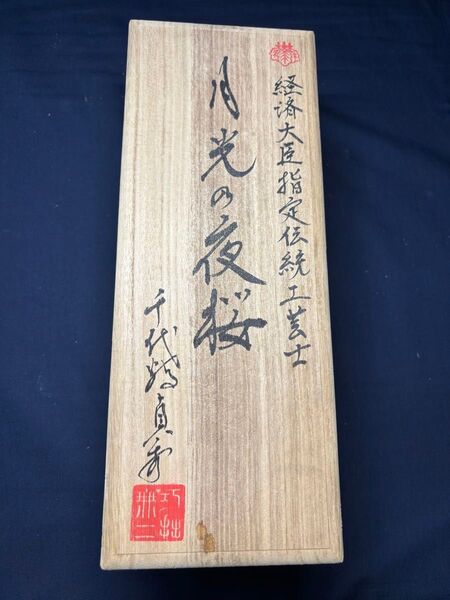 経済大臣指定伝統工芸士
月光の夜桜
千代鶴貞秀